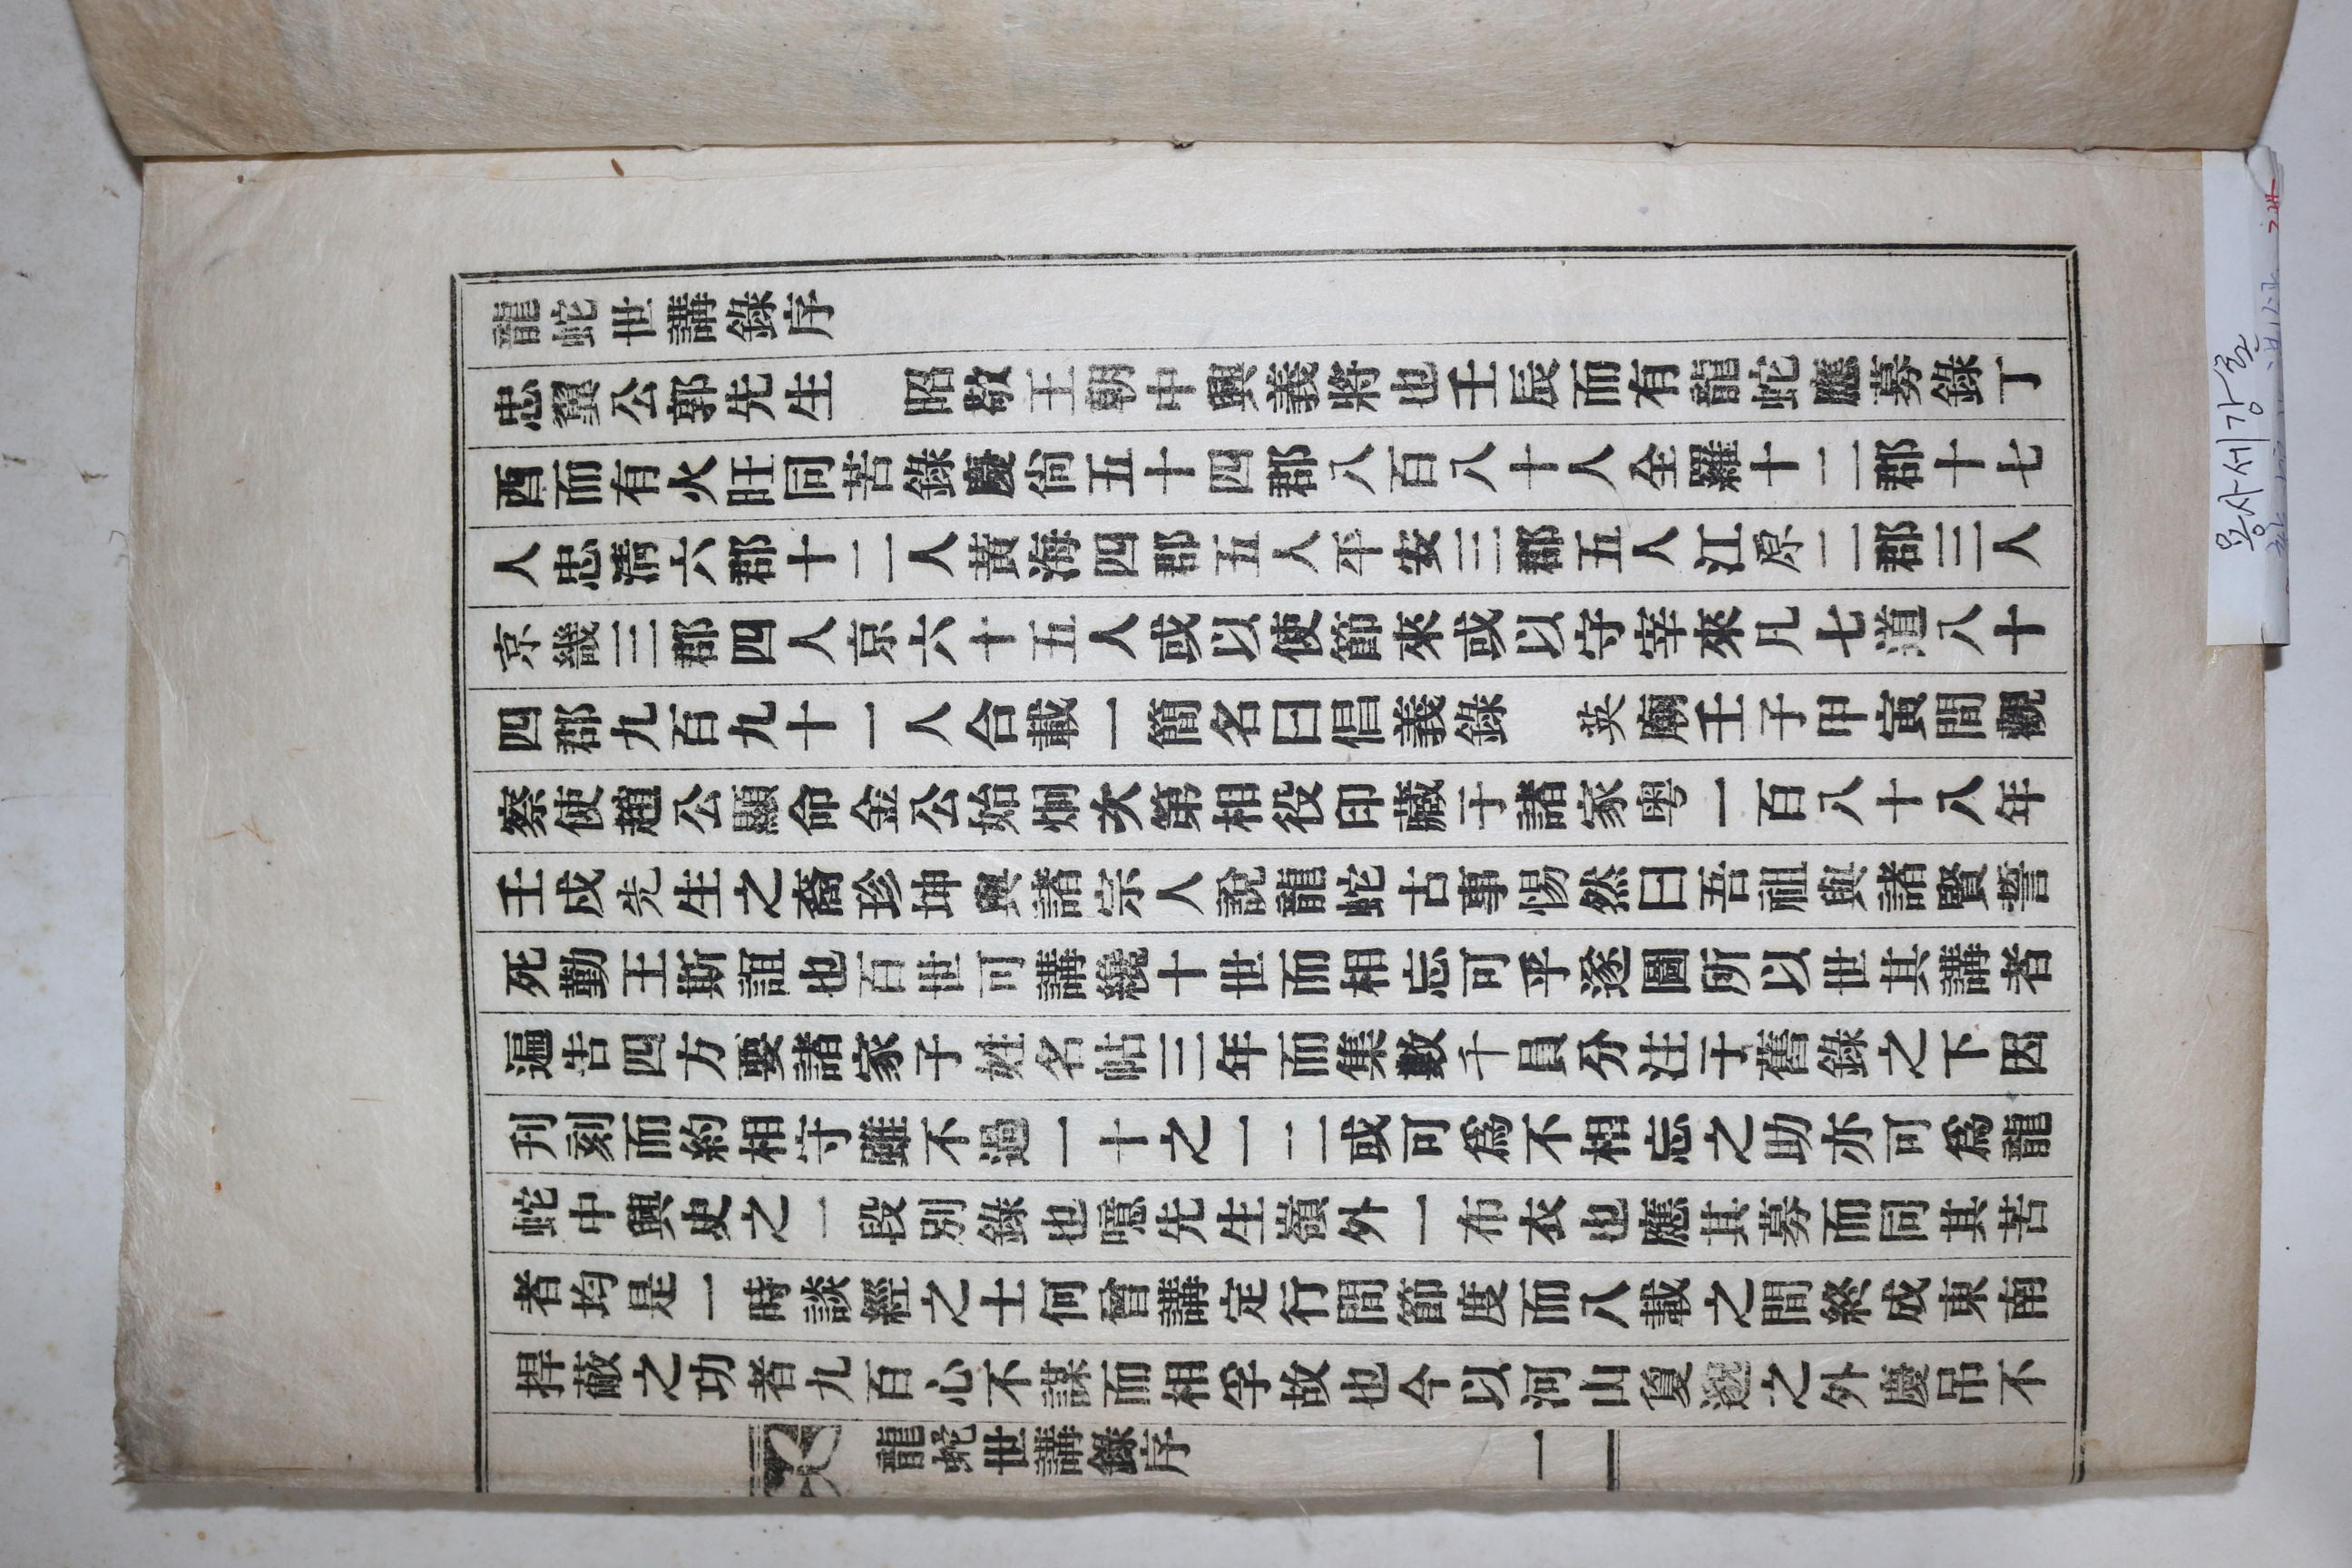 龍蛇世講錄序
忠翼公郭先生　昭敬王朝中興義將也壬辰而有龍蛇應募錄丁
酉而有火旺同苦錄慶尙五十四郡八百八十人全羅十二郡十七
人忠淸六郡十二人黃海四郡五人平安三郡五人江原二郡三人
京畿三郡四人京六十五人或以使節來或以守宰來凡七道八十
四郡九百九十一人合載一簡名曰倡義錄　英廟壬子甲寅間觀
察使趙公顯命金公始炯次第相役印藏于諸家粤一百八十八年
壬戌先生之裔珍坤與諸宗人說龍蛇古事惕然曰吾祖與諸賢誓
死勤王斯誼也百世可講纔十世而相忘可乎遂圖所以世其講者
遍告四方要諸家子姓名帖三年而集數千員分注于舊錄之下因
刊刻而約相守雖不過一十之一二或可爲不相忘之助亦可爲龍
蛇中興史之一段別錄也噫先生嶺外一布衣也應其募而同其苦
者均是一時談經之士何曾講定行間節度而八載之間終成東南
捍蔽之功者九百心不謀而相孚故也今以河山夐邈之外慶吊不
龍蛇世講錄序
一
용사세강록